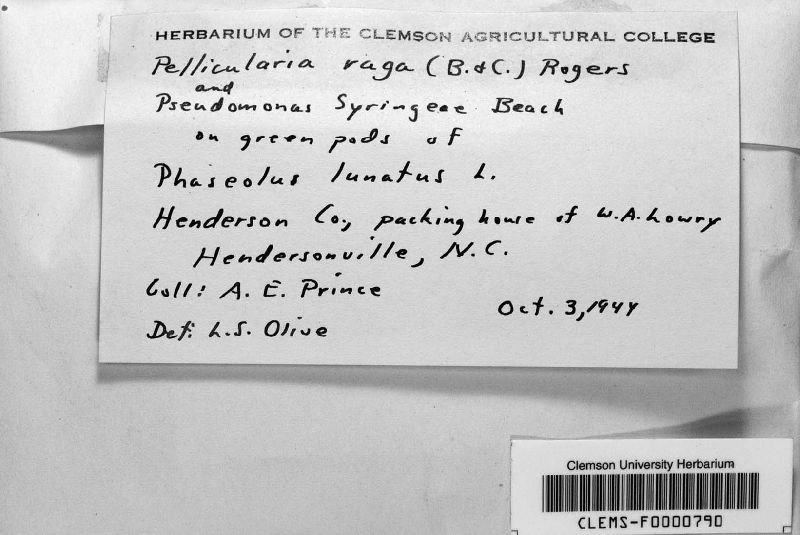 HERBARIUM OF THE CLEMSON AGRICULTURAL COLLEGE
Pellicularia vaga (B. & C.) Rogers
and
Pseudomonas Syringeae Beach
on green pods of
Phaseolus lunatus L.
Henderson Co., packing house of W.A. Lowry
Hendersonville, N.C.
Coll: A. E. Prince
Oct. 3, 1944
Det: L.S. Olive
Clemson University Herbarium
CLEMS-F0000790